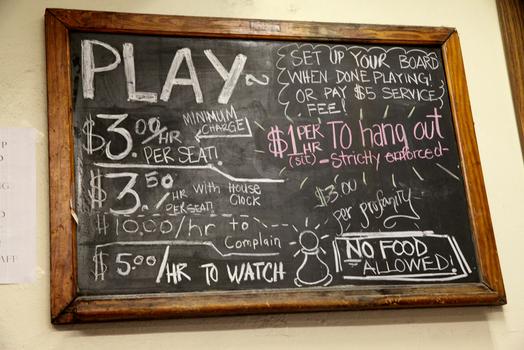 PLAY~
$3.00/HR
PER SEAT!
MINIMUM
CHARGE
$3.50/HR with House
Clock
PER SEAT!
$10.00/hr to
Complain
$5.00/HR TO WATCH
SET UP YOUR BOARD
WHEN DONE PLAYING!
OR PAY $5 SERVICE
FEE!
$1 PER
HR TO hang out
(sit) - Strictly enforced -
$3.00
per profanity
NO FOOD
ALLOWED!